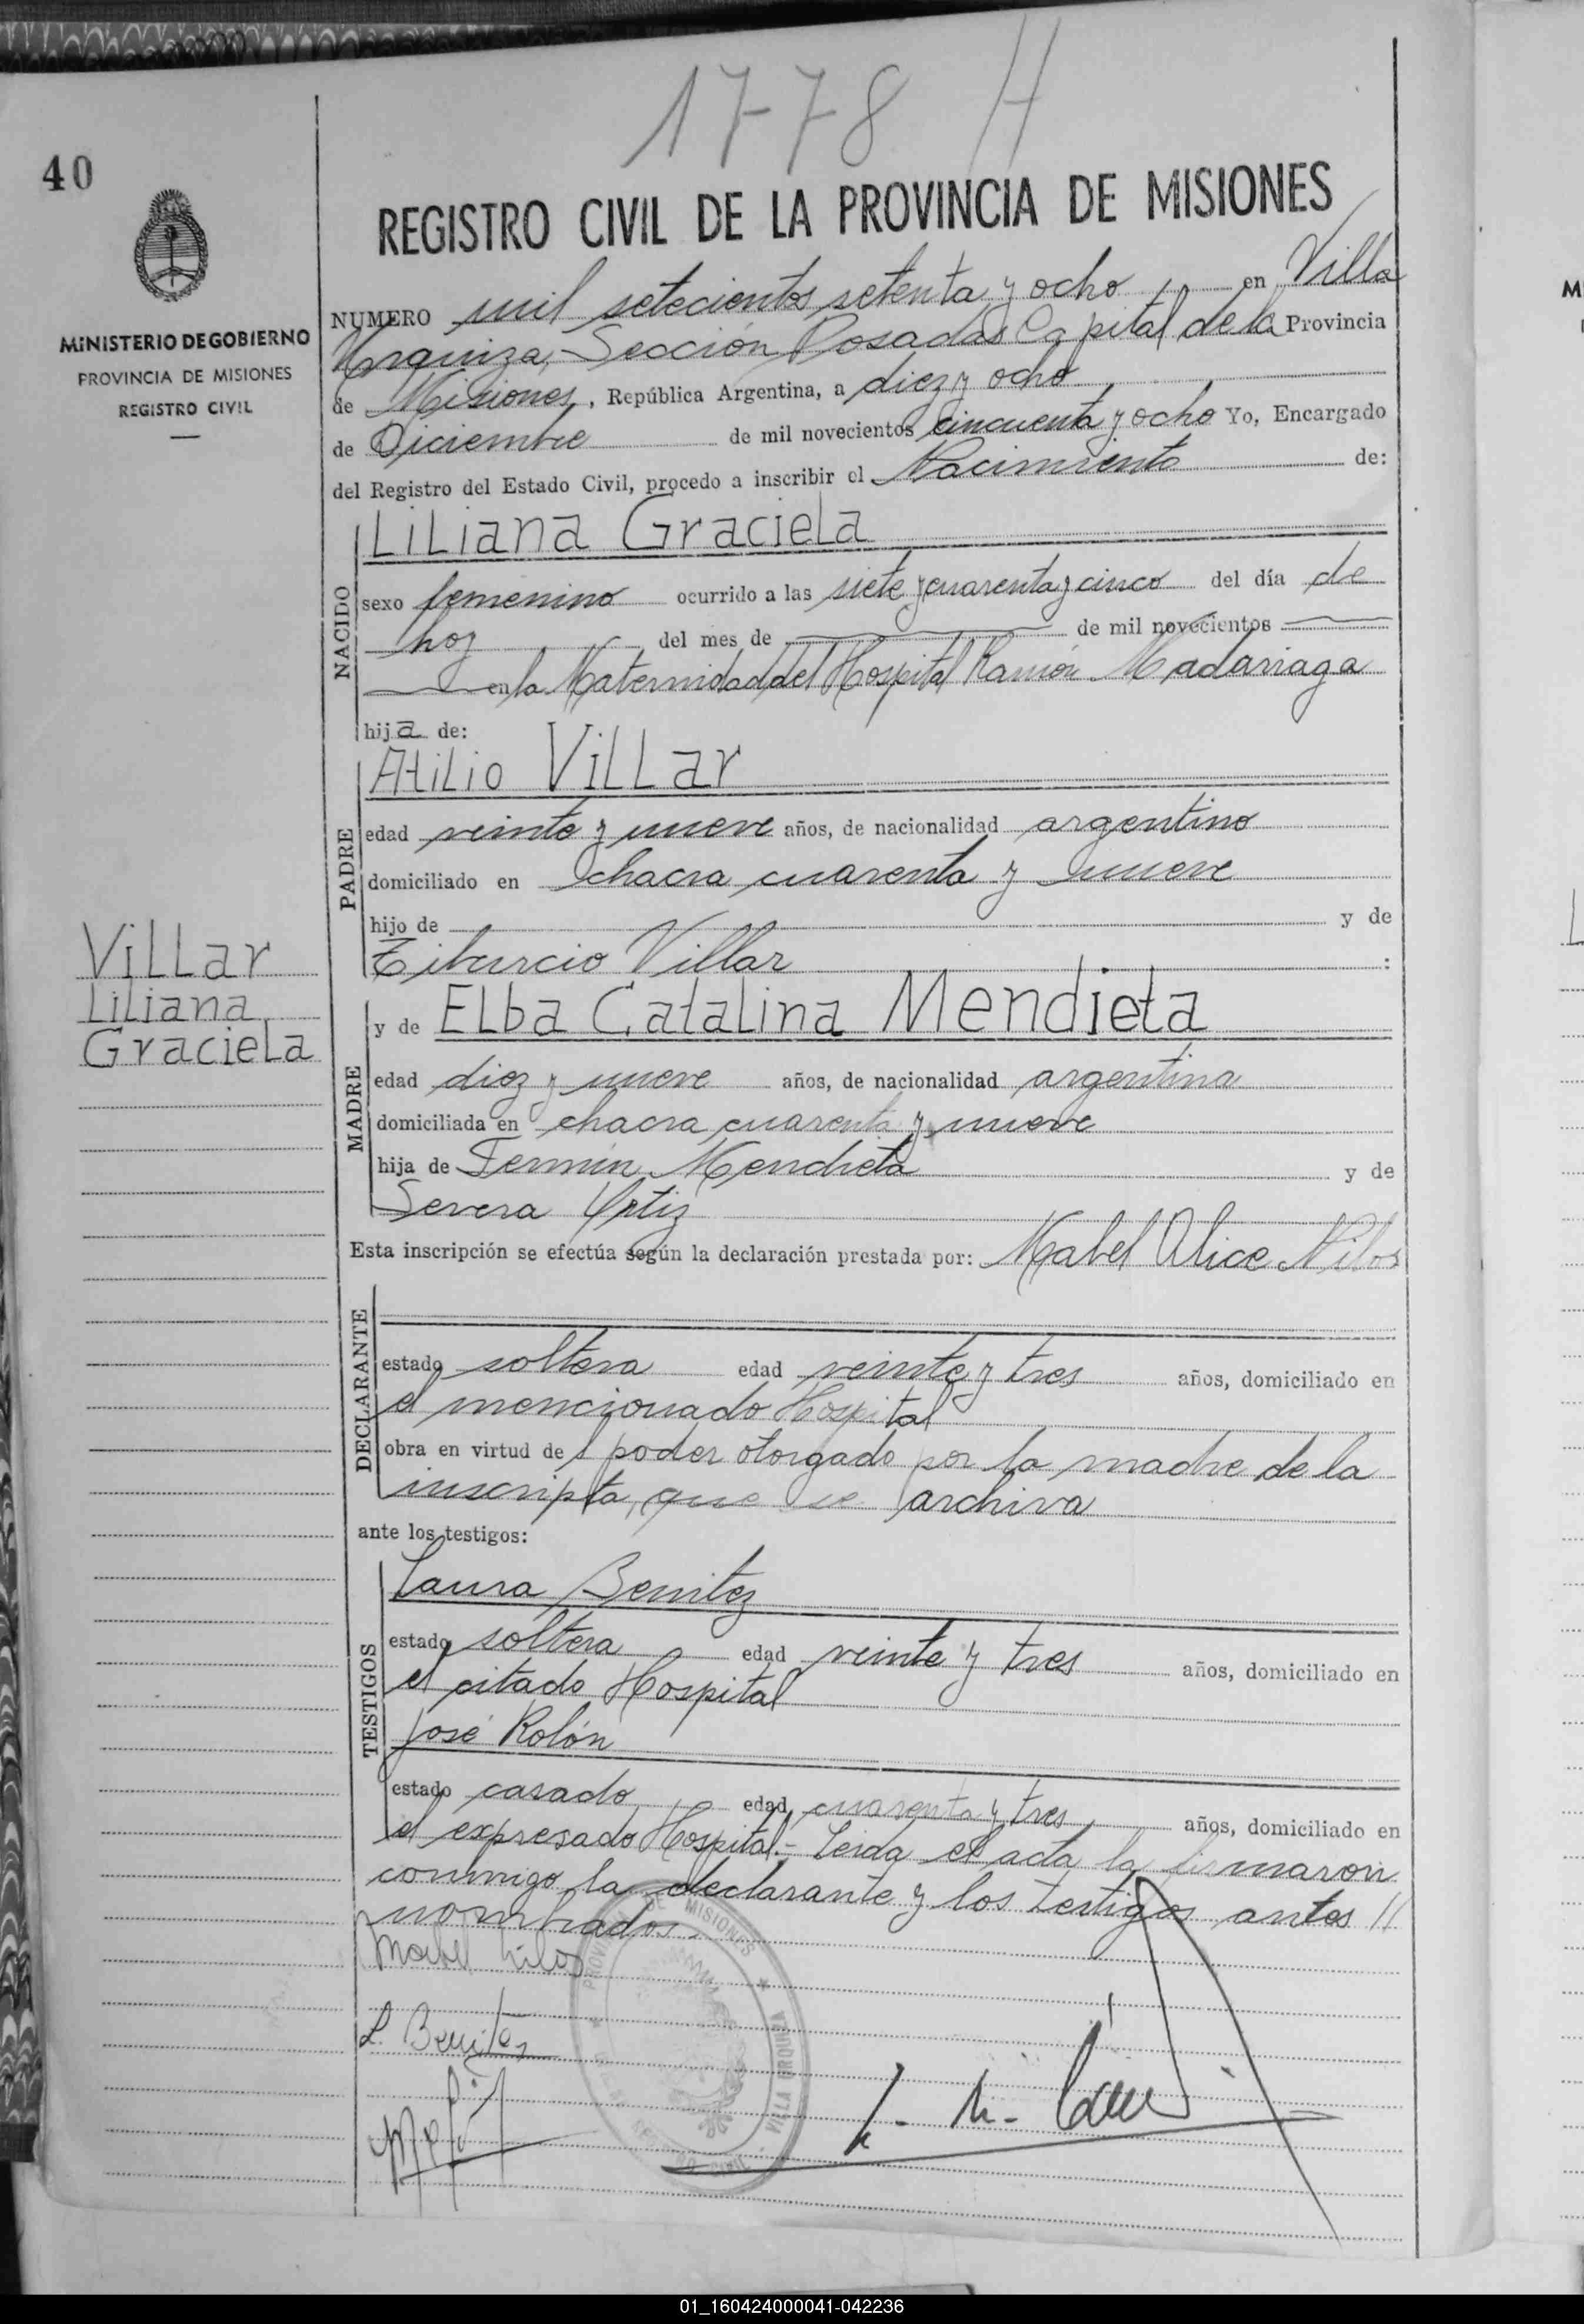 1778 H
40
REGISTRO CIVIL DE LA PROVINCIA DE MISIONES
MINISTERIO DE GOBIERNO
PROVINCIA DE MISIONES
REGISTRO CIVIL
NUMERO mil setecientos setenta y ocho en Villa
Urquiza, Sección Posadas Capital de la Provincia
de Misiones, República Argentina, a diez y ocho
de Diciembre de mil novecientos cincuenta y ocho Yo, Encargado
del Registro del Estado Civil, procedo a inscribir el Nacimiento de:
NACIDO
Liliana Graciela
sexo femenino ocurrido a las siete y cuarenta y cinco del día de
hoy del mes de de mil novecientos
en la Maternidad del Hospital Ramón Madariaga
hija de:
PADRE
Atilio Villar
edad veinte y nueve años, de nacionalidad argentino
domiciliado en chacra cuarenta y nueve
hijo de y de
Tiburcio Villar :
Villar
Liliana
Graciela
MADRE
y de Elba Catalina Mendieta
edad diez y nueve años, de nacionalidad argentina
domiciliada en chacra cuarenta y nueve
hija de Fermín Mendieta y de
Severa Ortiz
Esta inscripción se efectúa según la declaración prestada por: Mabel Alice Nilos
DECLARANTE
estado soltera edad veinte y tres años, domiciliado en
el mencionado Hospital
obra en virtud del poder otorgado por la madre de la
inscripta, que se archiva
ante los testigos:
TESTIGOS
Laura Benitez
estado soltera edad veinte y tres años, domiciliado en
el citado Hospital
José Rolón
estado casado edad cuarenta y tres años, domiciliado en
el expresado Hospital.- Leida el acta la firmaron
conmigo la declarante y los testigos antes //
nombrados.
Mabel Nilos
L. Benitez
PROVINCIA DE MISIONES
VILLA URQUIZA
01_160424000041-042236